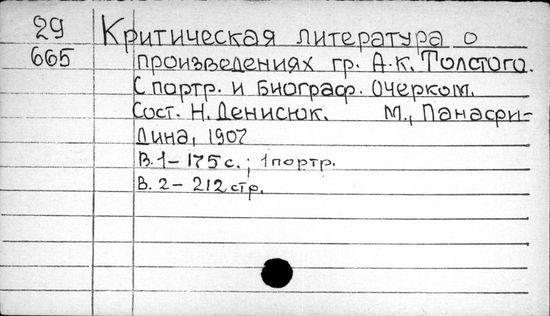 29 Критическая литература о
665 произведениях гр. А.К. Толстого.
С портр. и биограф. Очерком.
Сост. Н. Денисюк. М., Панафи-
дина, 1907
В. 1 - 175 с.; 1 портр.
В. 2 - 212 стр.